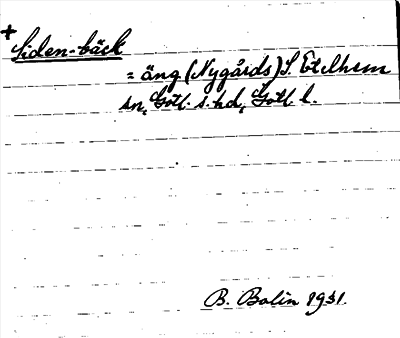 +
Liden-bäck
= äng (Nygårds) S. Etelhem
sn, Gotl. s. hd, Gotl. l.
B. Bolin 1931.